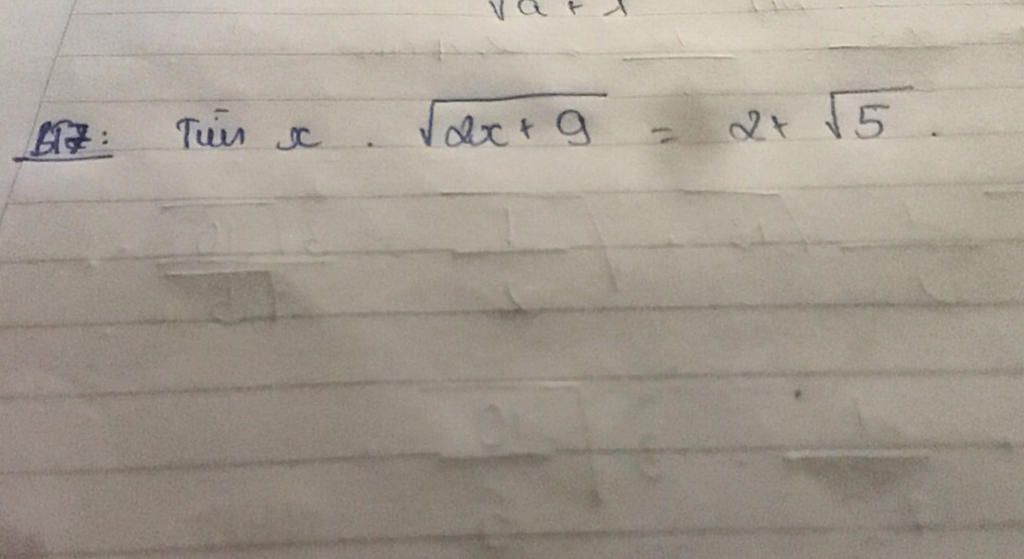 √a + x
BT7: Tìm x. √2x + 9 = 2 + √5.